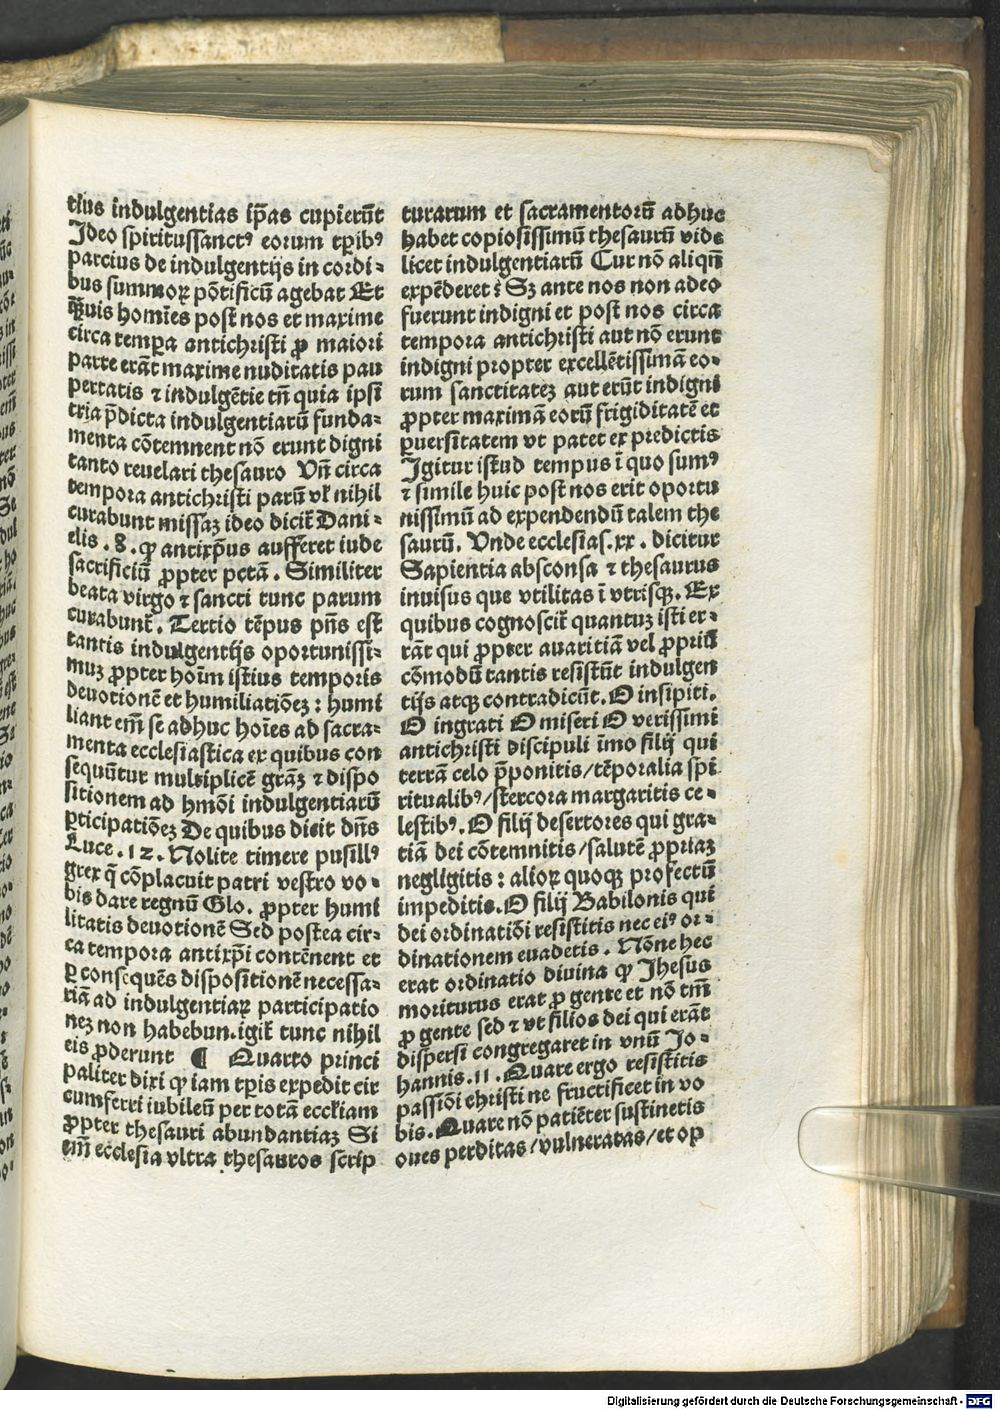 tius indulgentias ip̃as cupierũt
Ideo spiritussanctꝰ eorum tꝑibꝰ
parcius de indulgentijs in cordi⸗
bus summoꝝ põtificũ agebat Et
q̃uis homĩes post̃ nos et maxime
circa tempꝛa antichristi ꝓ maiori
parte erãt maxime nuditatis pau
pertatis ⁊ indulgẽtie tñ quia ipsi
tria p̃dicta indulgentiarũ funda⸗
menta cõtemnent nõ erunt digni
tanto reuelari thesauro Vñ circa
tempora antichristi parũ vl̛ nihil
curabunt missaꝫ ideo dicit̃ Dani⸗
elis . 8 . ꝙ antixp̃us aufferet iude
sacrificiũ ꝓpter pctã . Similiter
beata virgo ⁊ sancti tunc parum
curabunt̃ . Tertio tẽpus pñs est
tantis indulgentijs oportunissi⸗
muꝫ ꝓpter hoĩm istius temporis
deuotionẽ et humiliatiõeꝫ : humi
liant em̃ se adhuc hoĩes ad sacra⸗
menta ecclesiastica ex quibus con
sequũtur multiplicẽ grãꝫ ⁊ dispo
sitionem ad hmõi indulgentiarũ
ꝑticipatiõeꝫ De quibus dicit dñs
Luce . 12 . Nolite timere pusillꝰ
grex q̃ cõplacuit patri vestro vo⸗
bis dare regnũ Glo . ꝓpter humi
litatis deuotionẽ Sed postea cir⸗
ca tempora antixp̃i contẽnent et
ꝑ consequẽs dispositionẽ necessa⸗
riã ad indulgentiaꝝ participatio
neꝫ non habebun . igit̃ tunc nihil
eis ꝓderunt ¶ Quarto princi
paliter dixi ꝙ iam tꝑis expedit cir
cumferri iubileũ per totã eccl̛iam
ꝓpter thesauri abundantiaꝫ Si
em̃ ecclesia vltra thesauros scrip
turarum et sacramentorũ adhuc
habet copiosissimũ thesaurũ vide
licet indulgentiarũ Cur nõ aliqñ
expẽderet : Sꝫ ante nos non adeo
fuerunt indigni et post nos circa
tempora antichristi aut nõ erunt
indigni propter excellẽtissimã eo⸗
rum sanctitateꝫ aut erũt indigni
ꝓpter maximã eorũ frigiditatẽ et
ꝑuersitatem vt patet ex predictis
Igitur istud tempus ĩ quo sumꝰ
⁊ simile huic post nos erit oportu
nissimũ ad expendendũ talem the
saurũ . Vnde ecclesias . xx . dicitur
Sapientia absconsa ⁊ thesaurus
inuisus que vtilitas ĩ vtrisqꝫ . Ex
quibus cognoscit̃ quantuꝫ isti er⸗
rãt qui ꝓpter auaritiã vel ꝓpriũ
cõmodũ tantis resistũt indulgen
tijs atqꝫ contradicũt . O insipiti .
O ingrati O miseri O verissimi
antichristi discipuli ĩmo filij qui
terrã celo p̃ponitis / tẽporalia spĩ
ritualibꝰ / stercora margaritis ce⸗
lestibꝰ . O filij desertores qui gra⸗
tiã dei cõtemnitis / salutẽ ꝓpriaꝫ
negligitis : alioꝝ quoqꝫ profectũ
impeditis . O filij Babilonis qui
dei ordinatiõi resistitis nec eiꝰ or⸗
dinationem euadetis . Nõne hec
erat ordinatio diuina ꝙ Jhesus
moriturus erat ꝓ gente et nõ tm̃
ꝓ gente sed ⁊ vt filios dei qui erãt
dispersi congregaret in vnũ Jo⸗
hannis . 11 . Quare ergo resistitis
passiõi christi ne fructificet in vo
bis . Quare nõ patiẽter sustinetis
oues perditas / vulneratas / et op
Digitalisierung gefördert durch die Deutsche Forschungsgemeinschaft - DFG